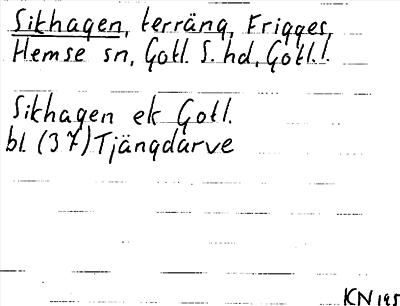 Sikhagen, terräng, Frigges,
Hemse sn, Gotl. S. hd, Gotl.!
Sikhagen ek Gotl.
bl. (37) Tjängdarve
KN 195